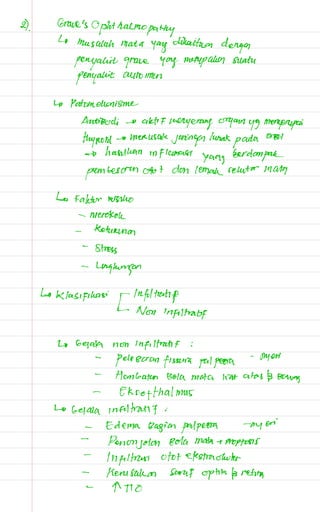 2). Grave's Opthalmopathy
↳ masalah mata yag dikaitkan dengan
penyakit grave yag merupakan suatu
penyakit autoimen
↳ Patomekanisme
Antibodi → aktif menyerang organ yg menyerupai
thyroid → merusak jaringan lunak pada orbit
→ hasilkan inflamasi yang berdampak
pembesaran otot dan lemak sekitar mata
↳ Faktor resiko
- Merokok
- Keturunan
- Stress
- Lingkungan
↳ Klasifikasi Infiltratif
Non Infiltratif
↳ Gejala non infiltratif :
- Pelebaran fissura palpebra - nyeri
- Hambatan Bola mata liat atas & Bawah
- Eksofthalmus
↳ Gejala infiltratif :
- Edema bagian palpebra - nyeri
- Penonjolan Bola mata → proptosis
- Infiltrasi otot ekstraokuler
- Kerusakan saraf optik & retina
- ↑ TIO